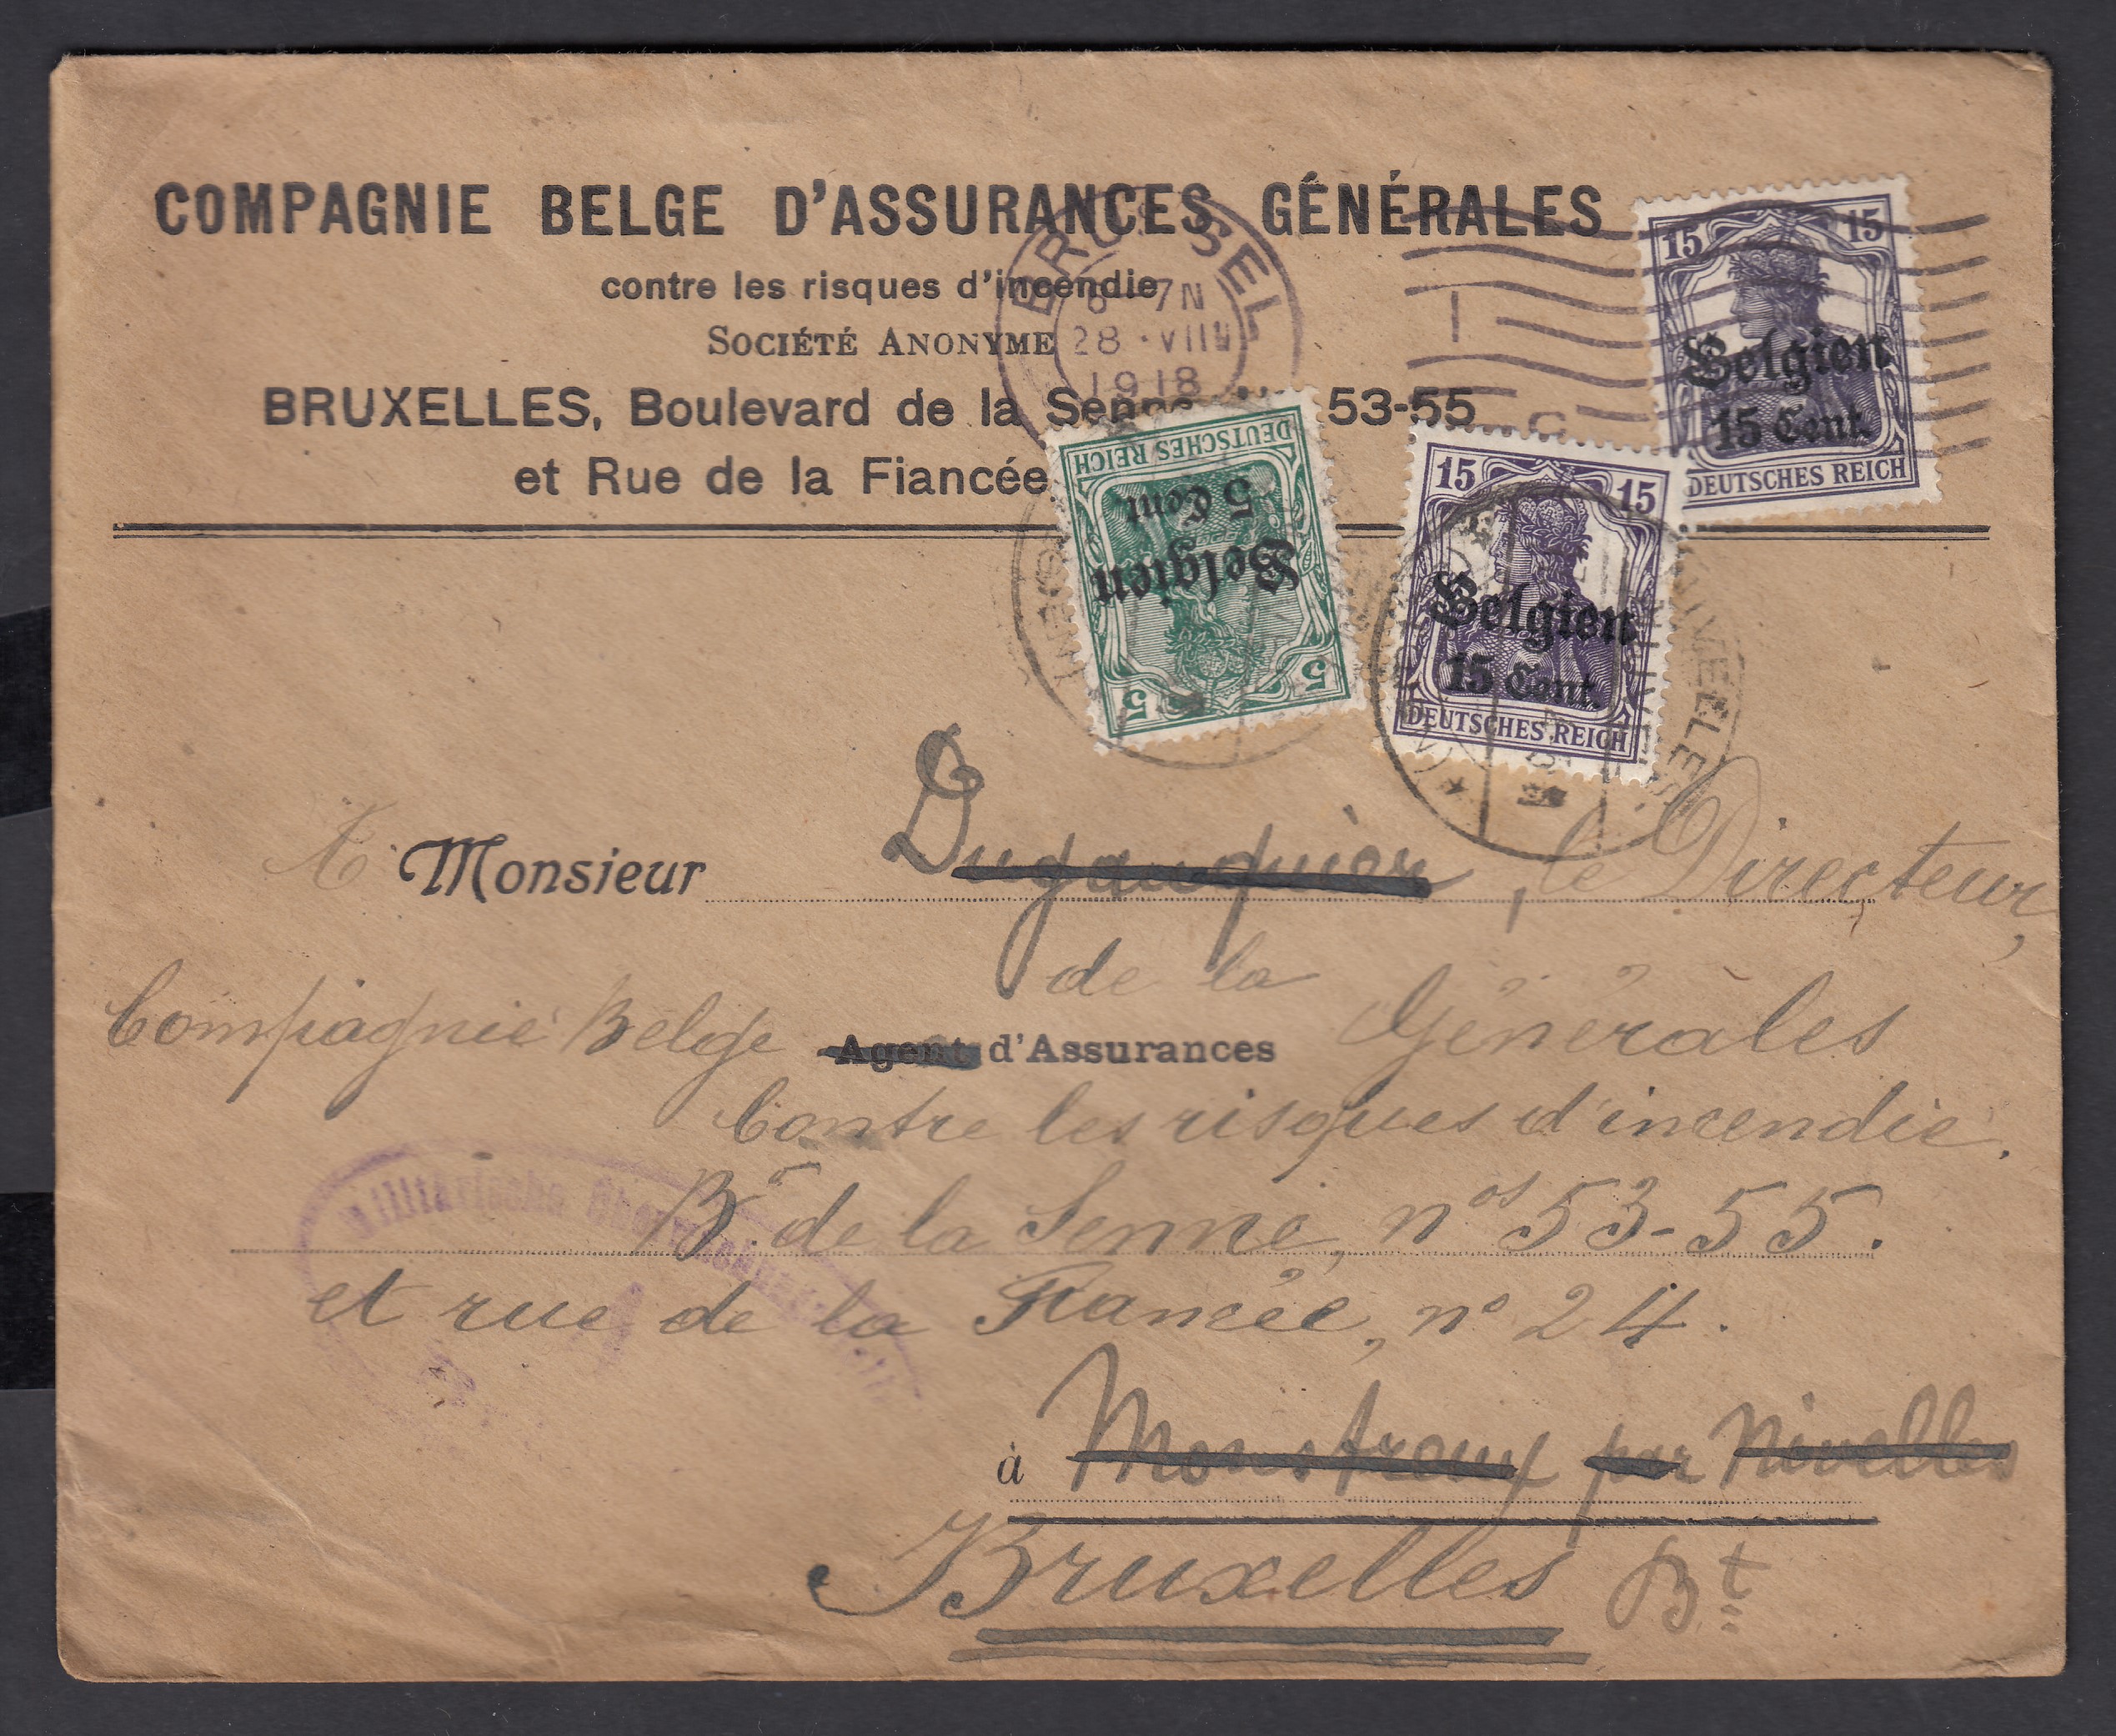 COMPAGNIE BELGE D'ASSURANCES GÉNÉRALES
contre les risques d'incendie
SOCIÉTÉ ANONYME
BRUXELLES, Boulevard de la Senne, 53-55
et Rue de la Fiancée
BRÜSSEL
6-7N
28·VIII
1918
15 15
Belgien
15 Cent.
DEUTSCHES REICH
15 15
Belgien
15 Cent.
DEUTSCHES REICH
DEUTSCHES REICH
5 Cent
Belgien
5 5
NIVELLES
A Monsieur Dugauquier, le Directeur,
de la
Compagnie Belge Agent d'Assurances Générales
Contre les risques d'incendie.
Bd. de la Senne, nos 53-55.
et rue de la Fiancée, no 24.
Militärische
à Monstreux par Nivelles
Bruxelles Bt